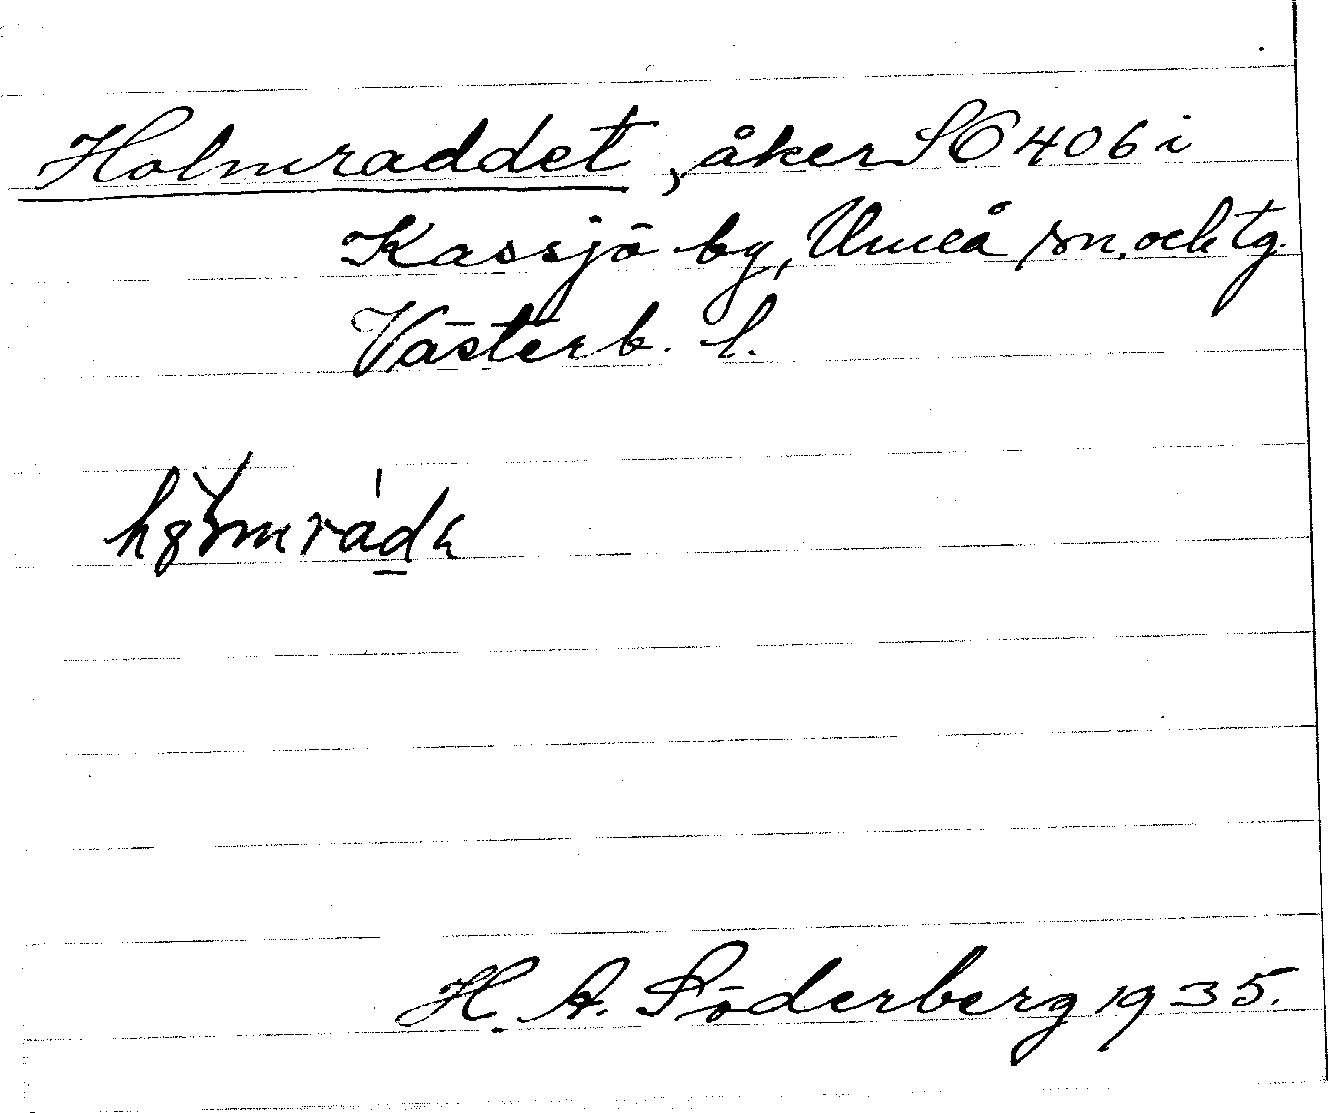 Holmraddet, åker SO 406 i
Kassjö by, Umeå sn. och tg.
Västerb. l.
H. A. Söderberg 1935.